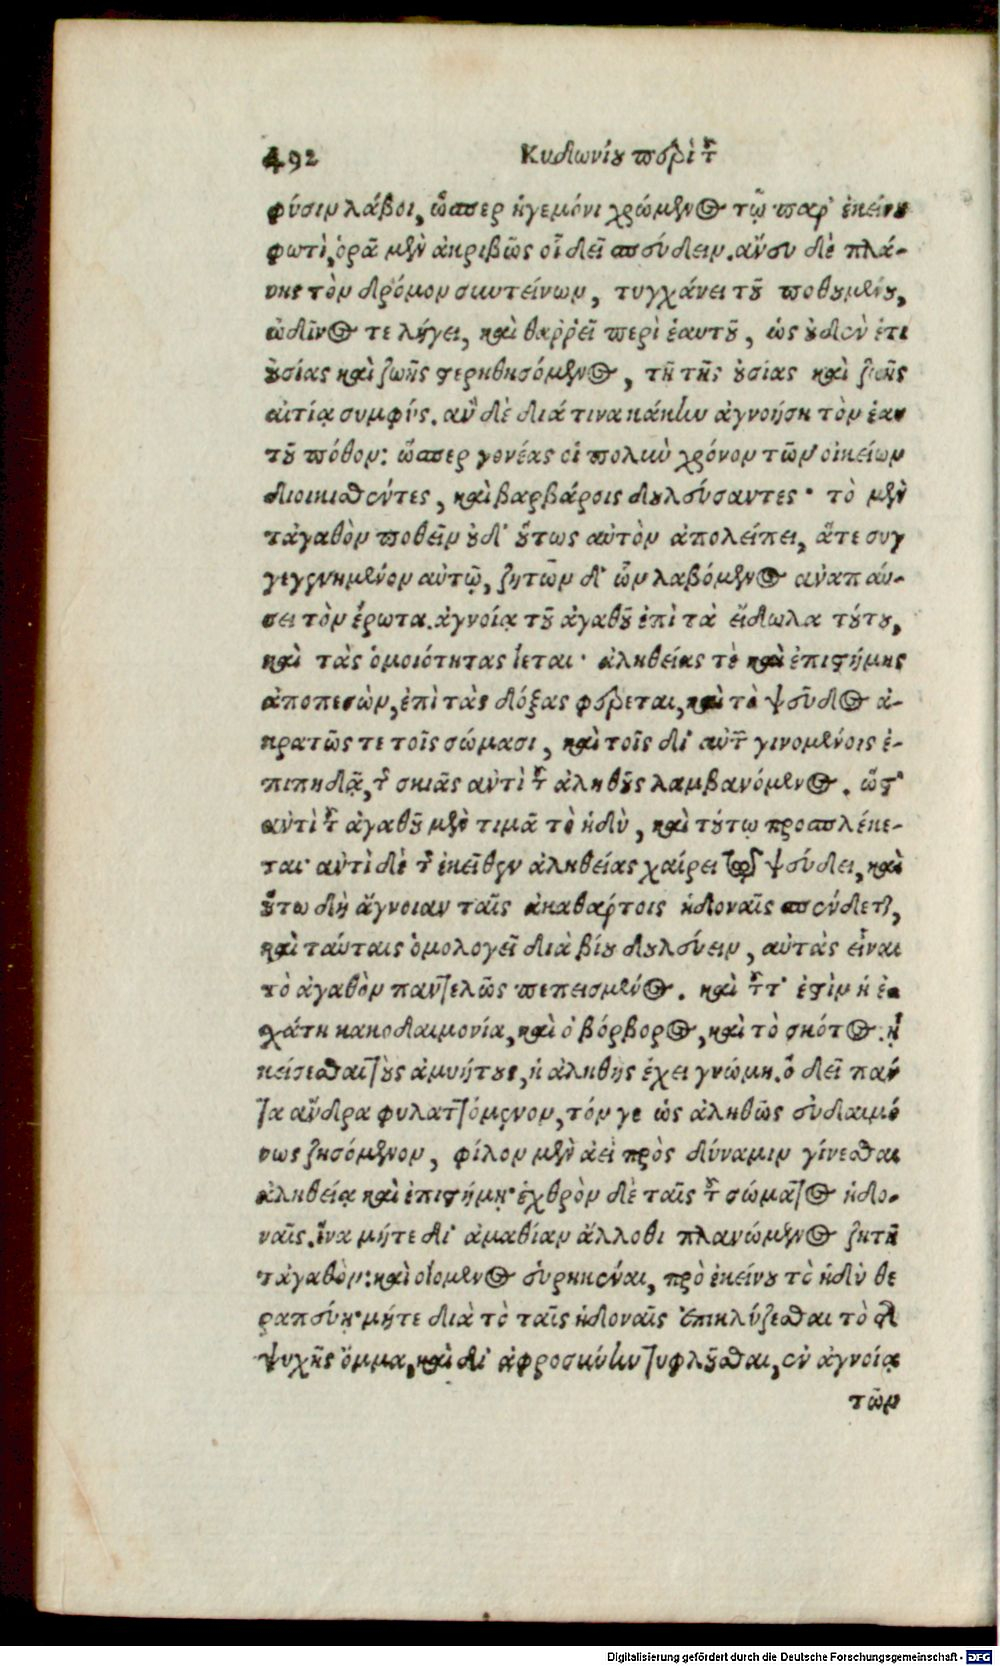 492 Κυδωνίου περὶ τοῦ
φύσιν λάβοι, ὥσπερ ἡγεμόνι χρώμενος τῷ παρ' ἐκείνου
φωτὶ, ὁρᾷ μὲν ἀκριβῶς οἷ δεῖ σπεύδειν. ἄνευ δὲ πλά-
νης τὸν δρόμον συντείνων, τυγχάνει τοῦ ποθουμένου,
ὠδῖνός τε λήγει, καὶ θαῤῥεῖ περὶ ἑαυτοῦ, ὡς οὐδὲν ἔτι
οὐσίας καὶ ζωῆς στερηθησόμενος, τῇ τῆς οὐσίας καὶ ζωῆς
αἰτίᾳ συμφύς. ἂν δὲ διά τινα κάκην ἀγνοήσῃ τὸν ἑαυ
τοῦ πόθον: ὥσπερ γονέας οἱ πολὺν χρόνον τῶν οἰκείων
διοικισθέντες, καὶ βαρβάροις δουλεύσαντες· τὸ μὲν
τἀγαθὸν ποθεῖν οὐδ' οὕτως αὐτὸν ἀπολείπει, ἅτε συγ
γεγενημένον αὐτῷ, ζητῶν δ' ὧν λαβόμενος ἀναπαύ-
σει τὸν ἔρωτα. ἀγνοίᾳ τοῦ ἀγαθοῦ ἐπὶ τὰ εἴδωλα τούτου,
καὶ τὰς ὁμοιότητας ἵεται· ἀληθείας τὲ καὶ ἐπιστήμης
ἀποπεσὼν, ἐπὶ τὰς δόξας φέρεται, καὶ τὸ ψεῦδος ἀ-
κρατῶς τε τοῖς σώμασι, καὶ τοῖς δι' αὐτῶν γινομένοις ἐ-
πιπηδᾷ, τῆς σκιᾶς ἀντὶ τοῦ ἀληθοῦς λαμβανόμενος. ὥστ'
ἀντὶ τοῦ ἀγαθοῦ μὲν τιμᾷ τὸ ἡδὺ, καὶ τούτῳ προσπλέκε-
ται· ἀντὶ δὲ τῆς ἐκεῖθεν ἀληθείας χαίρει τῷ ψεύδει, καὶ
οὕτω δὴ ἄγνοιαν ταῖς ἀκαθάρτοις ἡδοναῖς σπένδεται,
καὶ ταύταις ὁμολογεῖ διὰ βίου δουλεύειν, αὐτὰς εἶναι
τὸ ἀγαθὸν παντελῶς πεπεισμένος. καὶ τοῦτ' ἐστὶν ἡ ἐσ
χάτη κακοδαιμονία, καὶ ὁ βόρβορος, καὶ τὸ σκότος. ᾗ
κείσεσθαι τοὺς ἀμυήτους, ἡ ἀληθὴς ἔχει γνώμη. ὃ δεῖ πάν
τα ἄνδρα φυλαττόμενον, τόν γε ὡς ἀληθῶς εὐδαιμό
νως ζησόμενον, φίλον μὲν ἀεὶ πρὸς δύναμιν γίνεσθαι
ἀληθείᾳ καὶ ἐπιστήμῃ· ἐχθρὸν δὲ ταῖς τοῦ σώματος ἡδο-
ναῖς. ἵνα μήτε δι' ἀμαθίαν ἄλλοθι πλανώμενος ζητῇ
τἀγαθόν: καὶ οἰόμενος εὑρηκέναι, πρὸ ἐκείνου τὸ ἡδὺν θε
ραπεύῃ· μήτε διὰ τὸ ταῖς ἡδοναῖς ἐπικλύζεσθαι τὸ τῆς
ψυχῆς ὄμμα, καὶ δι' ἀφροσύνην τυφλοῦσθαι, ἐν ἀγνοίᾳ
τῶν
Digitalisierung gefördert durch die Deutsche Forschungsgemeinschaft - DFG